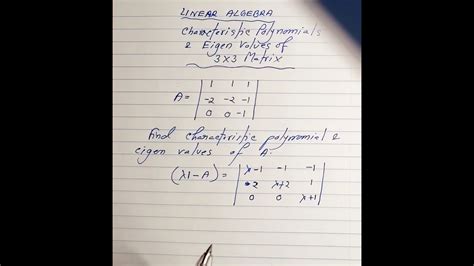 LINEAR ALGEBRA
Characteristic Polynomials
& Eigen Values of
3x3 Matrix
A = | 1 1 1 |
| -2 -2 -1 |
| 0 0 -1 |
Find characteristic polynomial &
eigen values of A:
(λI-A) = | λ-1 -1 -1 |
| 2 λ+2 1 |
| 0 0 λ+1 |